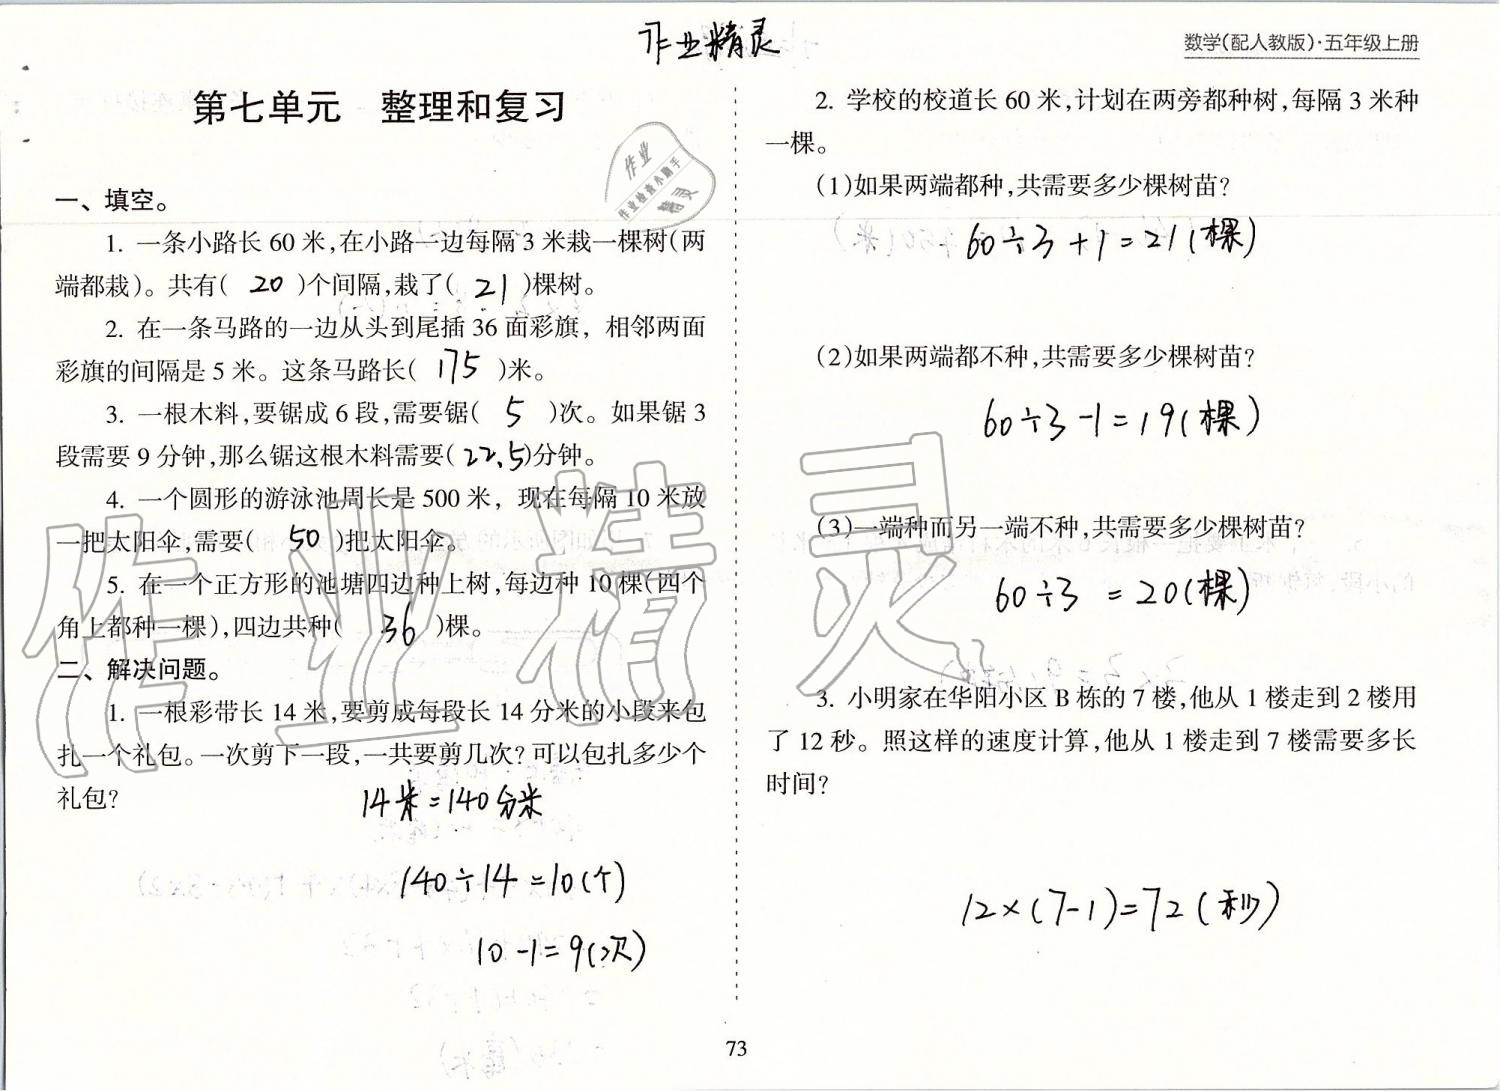 作业精灵
数学(配人教版)·五年级上册
第七单元 整理和复习
作业
作业检查小助手
精灵
一、填空。
1. 一条小路长 60 米,在小路一边每隔 3 米栽一棵树(两
端都栽)。共有( 20 )个间隔,栽了( 21 )棵树。
2. 在一条马路的一边从头到尾插 36 面彩旗，相邻两面
彩旗的间隔是 5 米。这条马路长( 175 )米。
3. 一根木料,要锯成 6 段,需要锯( 5 )次。如果锯 3
段需要 9 分钟,那么锯这根木料需要( 22.5 )分钟。
4. 一个圆形的游泳池周长是 500 米，现在每隔 10 米放
一把太阳伞,需要( 50 )把太阳伞。
5. 在一个正方形的池塘四边种上树,每边种 10 棵(四个
角上都种一棵),四边共种( 36 )棵。
二、解决问题。
1. 一根彩带长 14 米,要剪成每段长 14 分米的小段来包
扎一个礼包。一次剪下一段,一共要剪几次?可以包扎多少个
礼包?
14米=140分米
140÷14=10(个)
10-1=9(次)
2. 学校的校道长 60 米,计划在两旁都种树,每隔 3 米种
一棵。
(1)如果两端都种,共需要多少棵树苗?
60÷3+1=21(棵)
(2)如果两端都不种,共需要多少棵树苗?
60÷3-1=19(棵)
(3)一端种而另一端不种,共需要多少棵树苗?
60÷3 =20(棵)
3. 小明家在华阳小区 B 栋的 7 楼,他从 1 楼走到 2 楼用
了 12 秒。照这样的速度计算,他从 1 楼走到 7 楼需要多长
时间?
12×(7-1)=72(秒)
作业精灵
73